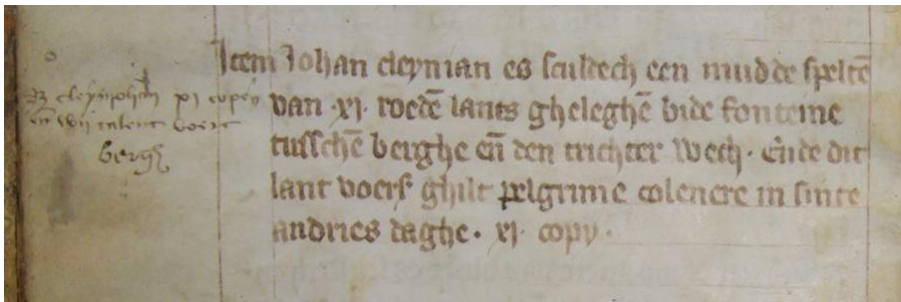 Item Johan cleynian es sculdech een mudde speltē
van .xj. roedē lants gheleghē bide fonteine
tusschē berghe en̄ den trichter wech. Ende dit
lant voerſ ghilt pelgrime colenere in sinte
andries daghe. xj. copy.
xj copen
en̄
bergh